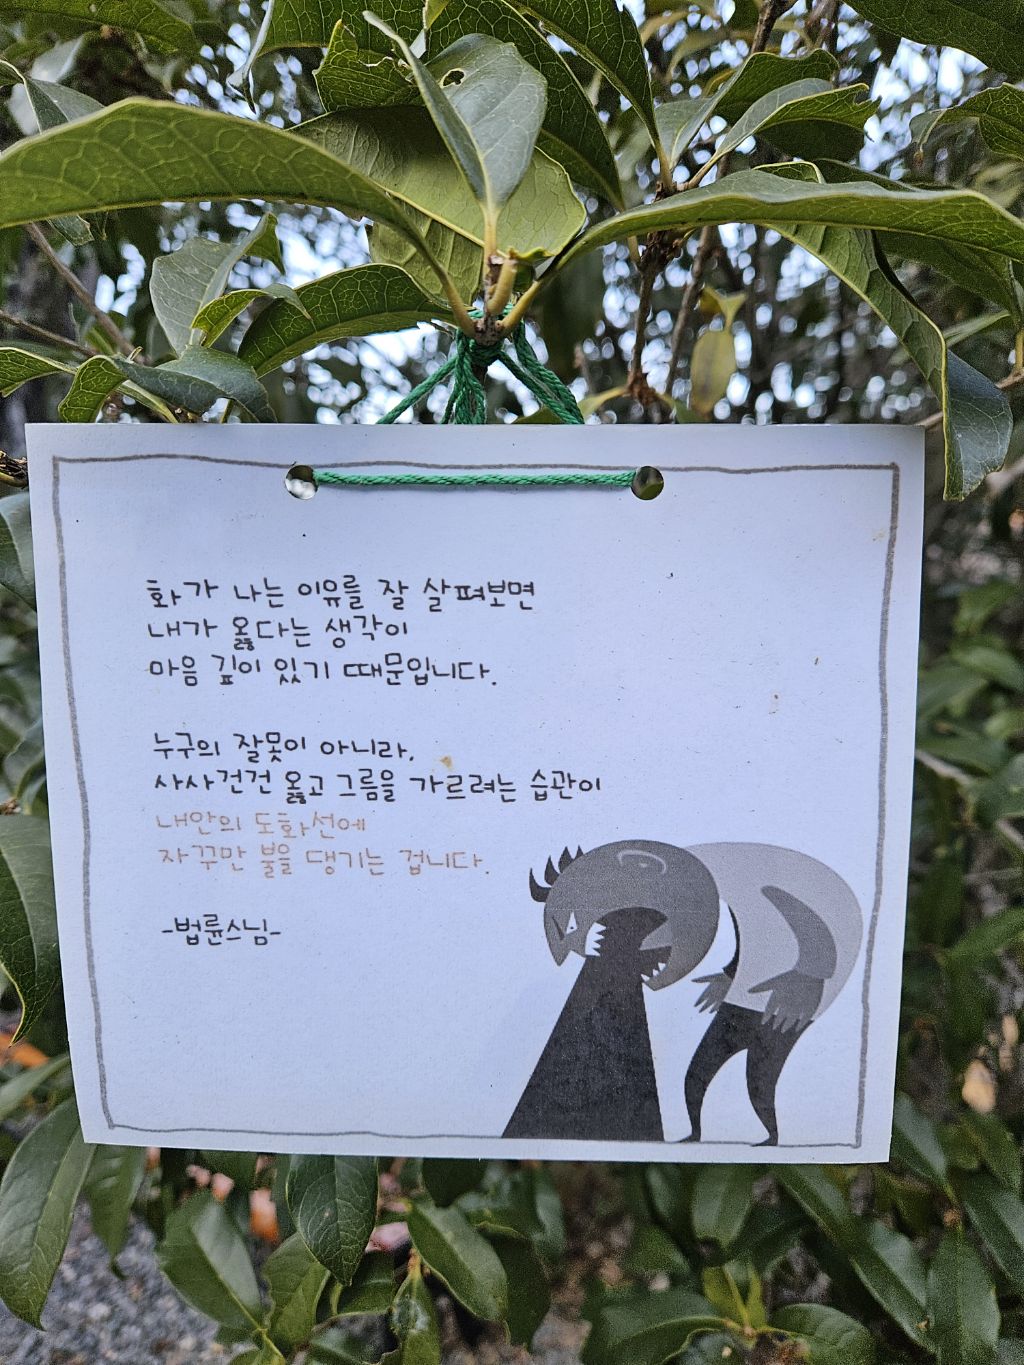 화가 나는 이유를 잘 살펴보면
내가 옳다는 생각이
마음 깊이 있기 때문입니다.
누구의 잘못이 아니라,
사사건건 옳고 그름을 가르려는 습관이
내안의 도화선에
자꾸만 불을 댕기는 겁니다.
-법륜스님-